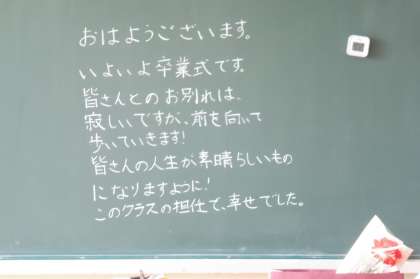 おはようございます。
いよいよ卒業式です。
皆さんとのお別れは、
寂しいですが、前を向いて
歩いていきます!
皆さんの人生が素晴らしいもの
になりますように!
このクラスの担任で、幸せでした。